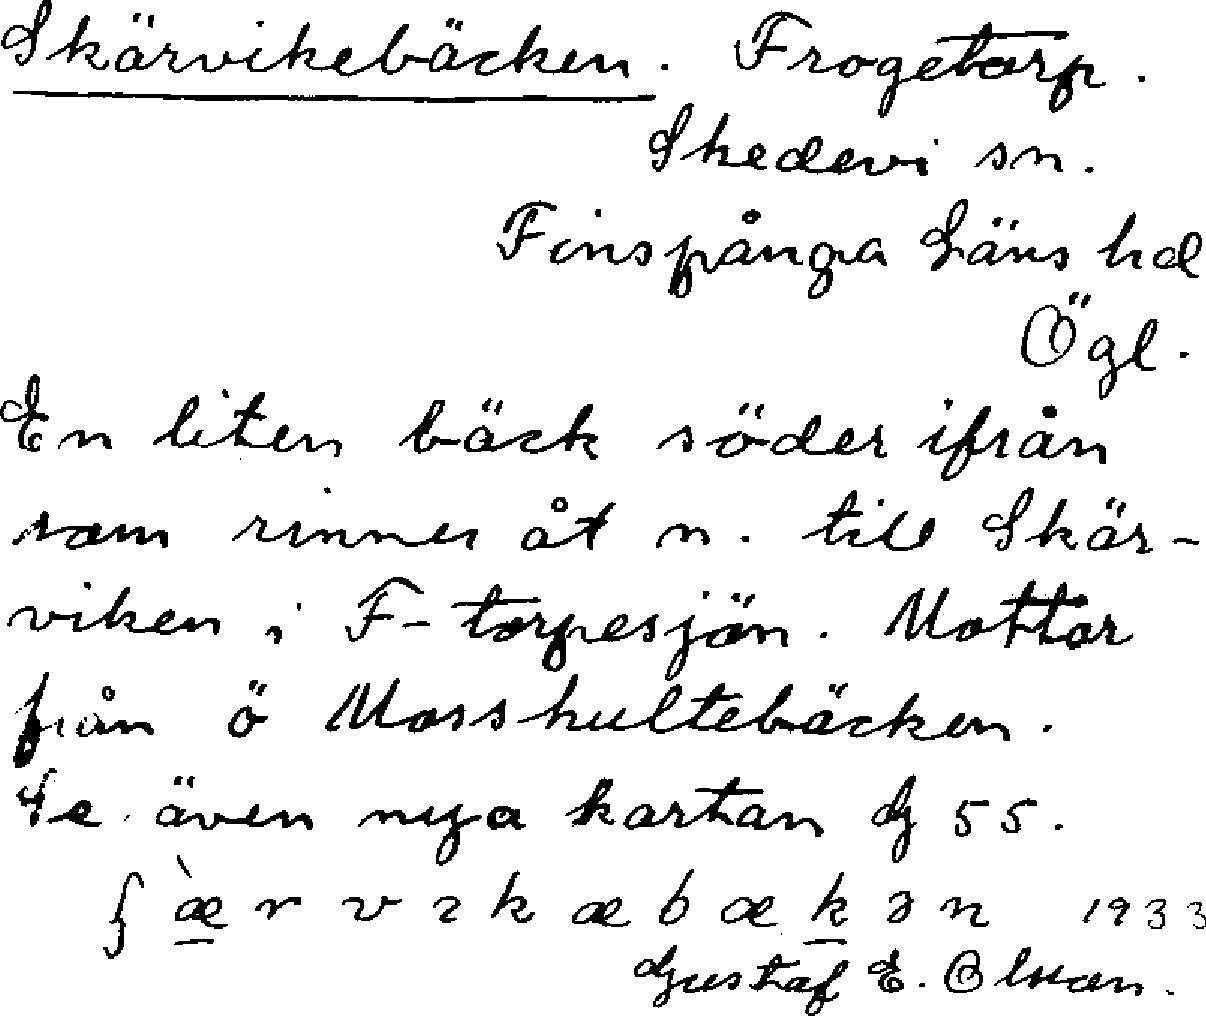 Skärvikebäcken. Frogetorp.
Skedevi sn.
Finspånga Läns hd
Ögl.
En liten bäck söder ifrån
som rinner åt n. till Skär-
viken i F-torpesjön. Mottar
från ö Mosshultebäcken.
Se även nya kartan G 55.
ʃ æ̀ r v ı k æ b æ k ə n 1933
Gustaf E. Olsson.